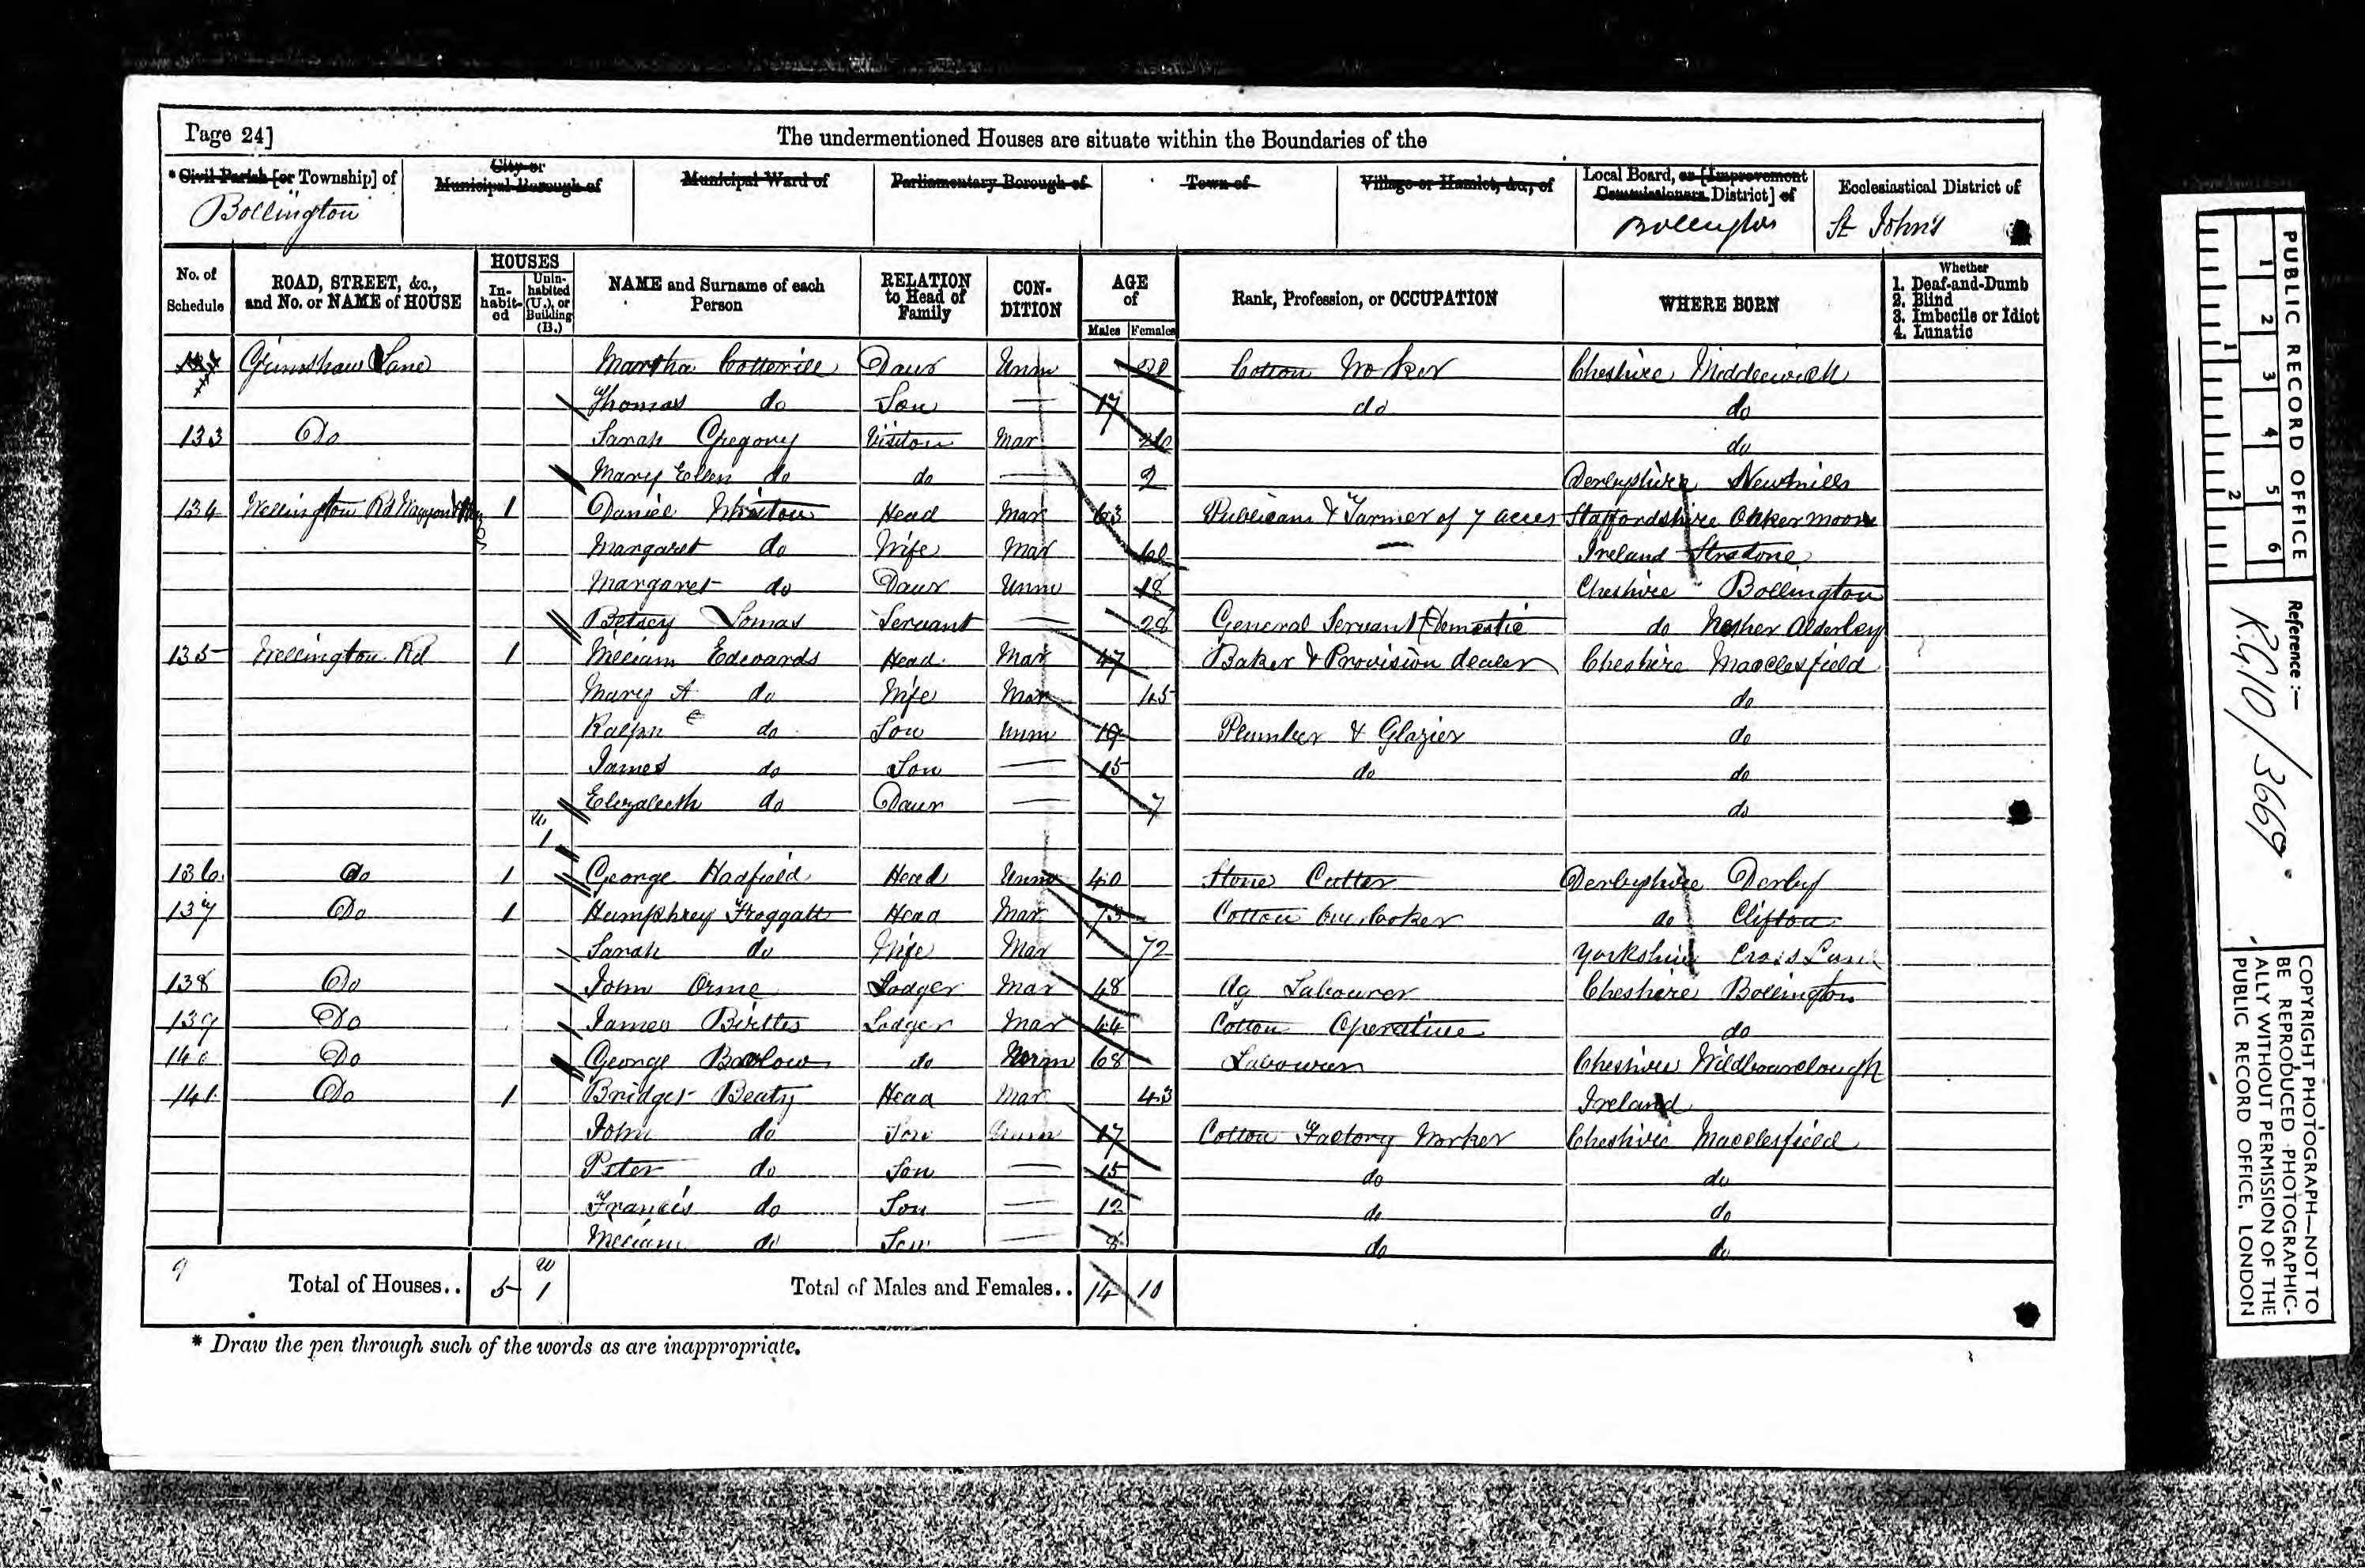 Page 24]
The undermentioned Houses are situate within the Boundaries of the
* Civil Parish [or Township] of
City or Municipal Borough of
Municipal Ward of
Parliamentary Borough of
Town of
Village or Hamlet, &c., of
Local Board, or [Improvement Commissioners District] of
Ecclesiastical District of
Bollington
Bollington
St John's
No. of Schedule
ROAD, STREET, &c., and No. or NAME of HOUSE
HOUSES
In-habit-ed
Unin-habited (U.), or Building (B.)
NAME and Surname of each Person
RELATION to Head of Family
CON-DITION
AGE of
Males
Females
Rank, Profession, or OCCUPATION
WHERE BORN
Whether
1. Deaf-and-Dumb
2. Blind
3. Imbecile or Idiot
4. Lunatic
Grimshaw Lane Martha Cotterill Daur Unm Cotton Worker Cheshire Middlewich
Thomas do Son — 17 do do
133 Do Sarah Gregory Visitor Mar do
Mary Ellen do do — 2 Derbyshire Newmills
134 Wellington Rd Waggon & 1 Daniel Head Mar 63 Publican & Farmer of 7 acres Staffordshire Oakermoor
Margaret do Wife Mar 60 — Ireland Stradone
Margaret do Daur Unm 18 Cheshire Bollington
Betsey Lomas Servant — 28 General Servant Domestic do Nether Alderley
135 Wellington Rd 1 William Edwards Head Mar 47 Baker & Provision dealer Cheshire Macclesfield
Mary A do Wife Mar 45 do
Ralph do Son Unm 19 Plumber & Glazier do
James do Son — 15 do do
Elizabeth do Daur — 7 do
u
1
136 Do 1 George Hadfield Head Unm 40 Stone Cutter Derbyshire Derby
137 Do 1 Humphrey Froggatt Head Mar 73 Cotton Overlooker do Clifton
Sarah do Wife Mar 72 Yorkshire Cross Lane
138 Do John Orme Lodger Mar 48 Ag Labourer Cheshire Bollington
139 Do James Birtles Lodger Mar 44 Cotton Operative do
140 Do George Barlow do 68 Labourer Cheshire Wildboarclough
141 Do 1 Bridget Beaty Head Mar 43 Ireland
John do Son Unm 17 Cotton Factory Worker Cheshire Macclesfield
Peter do Son — 15 do do
Francis do Son — 12 do do
William do Son — 8 do do
9
Total of Houses.. 5 u 1 Total of Males and Females.. 14 10
* Draw the pen through such of the words as are inappropriate.
PUBLIC RECORD OFFICE
1 2 3 4 5 6
1 2
Reference :—
R.G.10/3669
COPYRIGHT PHOTOGRAPH—NOT TO
BE REPRODUCED PHOTOGRAPHIC-
ALLY WITHOUT PERMISSION OF THE
PUBLIC RECORD OFFICE, LONDON